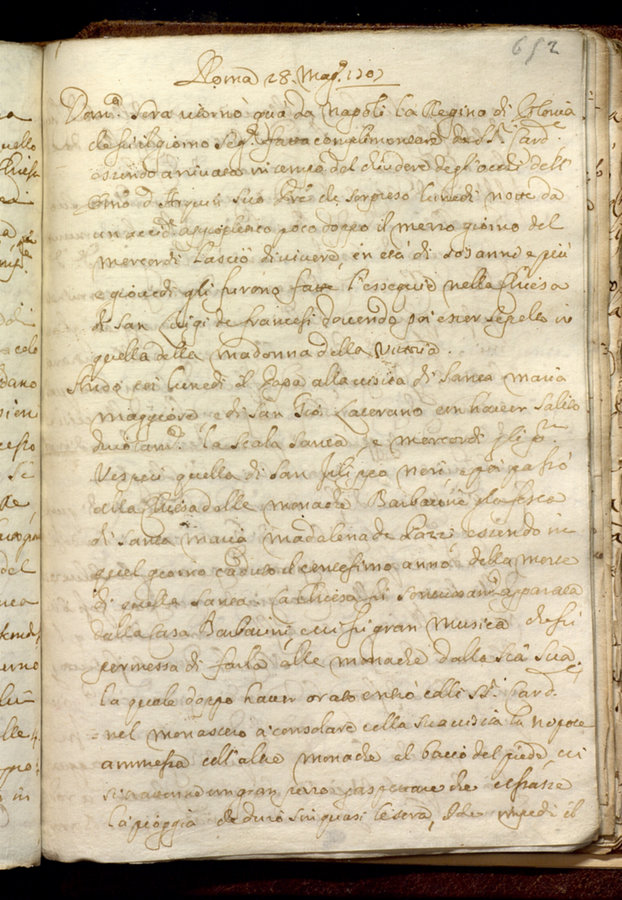 652
Roma 28 Mag.o 1707
Dom.ca sera ritornò quà da Napoli la Regina di Polonia
che fù il giorno seg.te fatta complimentare da SS.ri Card.li
essendo arrivata in tempo del chiudere degl'occhi dell'
Em.o d'Arquien suo Pre che sorpreso lunedì notte da
un accid.e apopletico poco doppo il mezzo giorno del
mercordì lasciò di vivere, in età di 103 anni e più
e giovedì gli furono fatte l'essequie nella Chiesa
di San Luigi de francesi dovendo poi esser sepolto in
quella della Madonna della Vittoria.
Andò poi lunedì il Papa alla visita di Santa Maria
Maggiore e di San Gio: Laterano con haver salito
divotam.e la Scala Santa e mercordì
Vesperi quella di San Filippo neri e poi passò
alla Chiesa delle monache Barbarine
di Santa Maria Madalena de Pazzi essendo in
quel giorno caduto il centesimo anno della morte
di quella Santa: la Chiesa fù apparata
dalla Casa Barbarini, e vi fù gran Musica che fù
permessa di farla alle monache dalla S.tà Sua
la quale doppo haver orato entrò colli SS.ri Card.li
nel monastero à consolare colla sua visita la nepote
ammessa coll'altre monache al bacio del piede, e vi
si trattenne un gran pezzo per aspettare che cessasse
la pioggia che durò sin quasi la sera, che impedì il